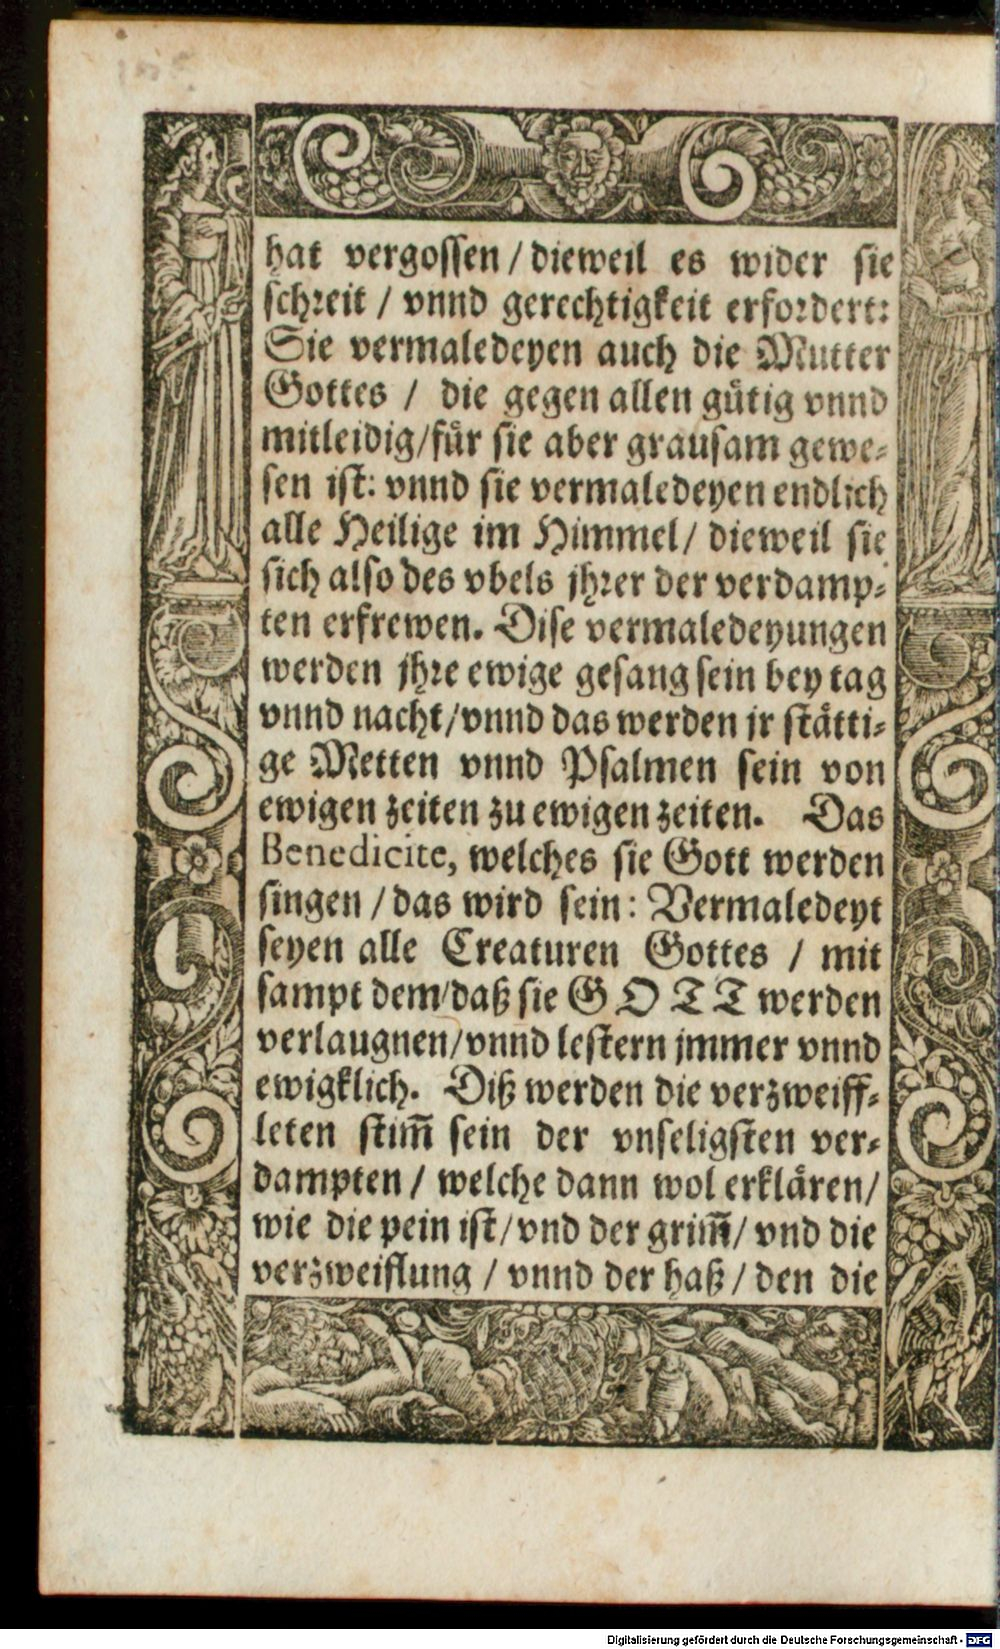 hat vergossen / dieweil es wider sie
schreit / vnnd gerechtigkeit erfordert:
Sie vermaledeyen auch die Mutter
Gottes / die gegen allen gütig vnnd
mitleidig/für sie aber grausam gewe-
sen ist: vnnd sie vermaledeyen endlich
alle Heilige im Himmel/ dieweil sie
sich also des vbels jhrer der verdamp-
ten erfrewen. Dise vermaledeyungen
werden jhre ewige gesang sein bey tag
vnnd nacht/vnnd das werden jr stätti-
ge Metten vnnd Psalmen sein von
ewigen zeiten zu ewigen zeiten. Das
Benedicite, welches sie Gott werden
singen / das wird sein: Vermaledeyt
seyen alle Creaturen Gottes / mit
sampt dem/daß sie GOTT werden
verlaugnen/vnnd lestern jmmer vnnd
ewigklich. Diß werden die verzweiff-
leten stim̃ sein der vnseligsten ver-
dampten / welche dann wol erklären/
wie die pein ist/vnd der grim̃/ vnd die
verzweiflung / vnnd der haß/ den die
Digitalisierung gefördert durch die Deutsche Forschungsgemeinschaft - DFG